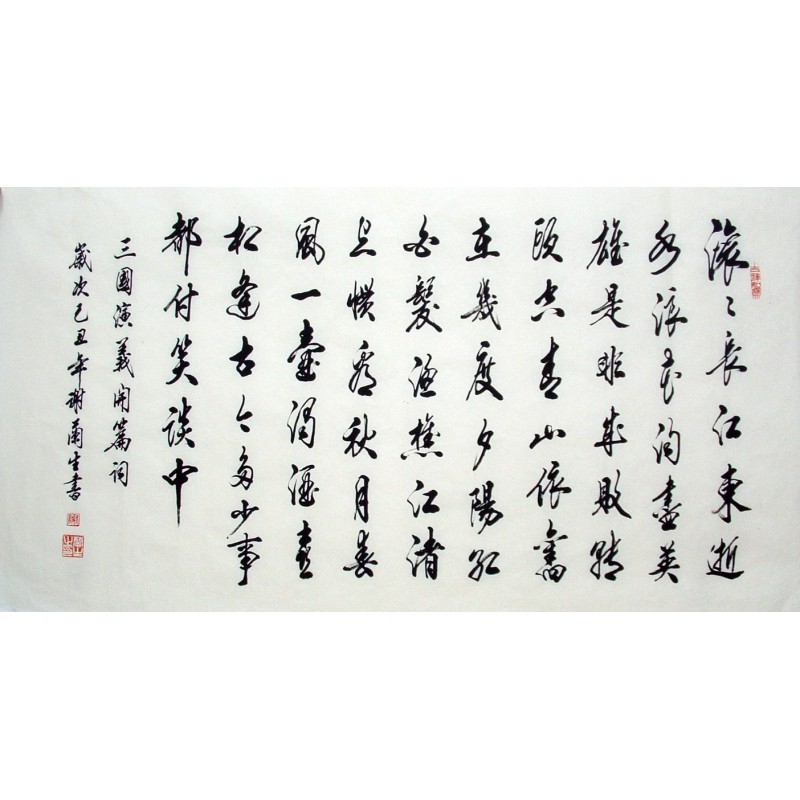 滾〻長江東逝
水浪花淘盡英
雄是非成敗轉
頭空青山依舊
在幾度夕陽紅
白髮漁樵江渚
上慣看秋月春
風一壺濁酒喜
相逢古今多少事
都付笑談中
三國演義開篇詞
歲次己丑年謝生書